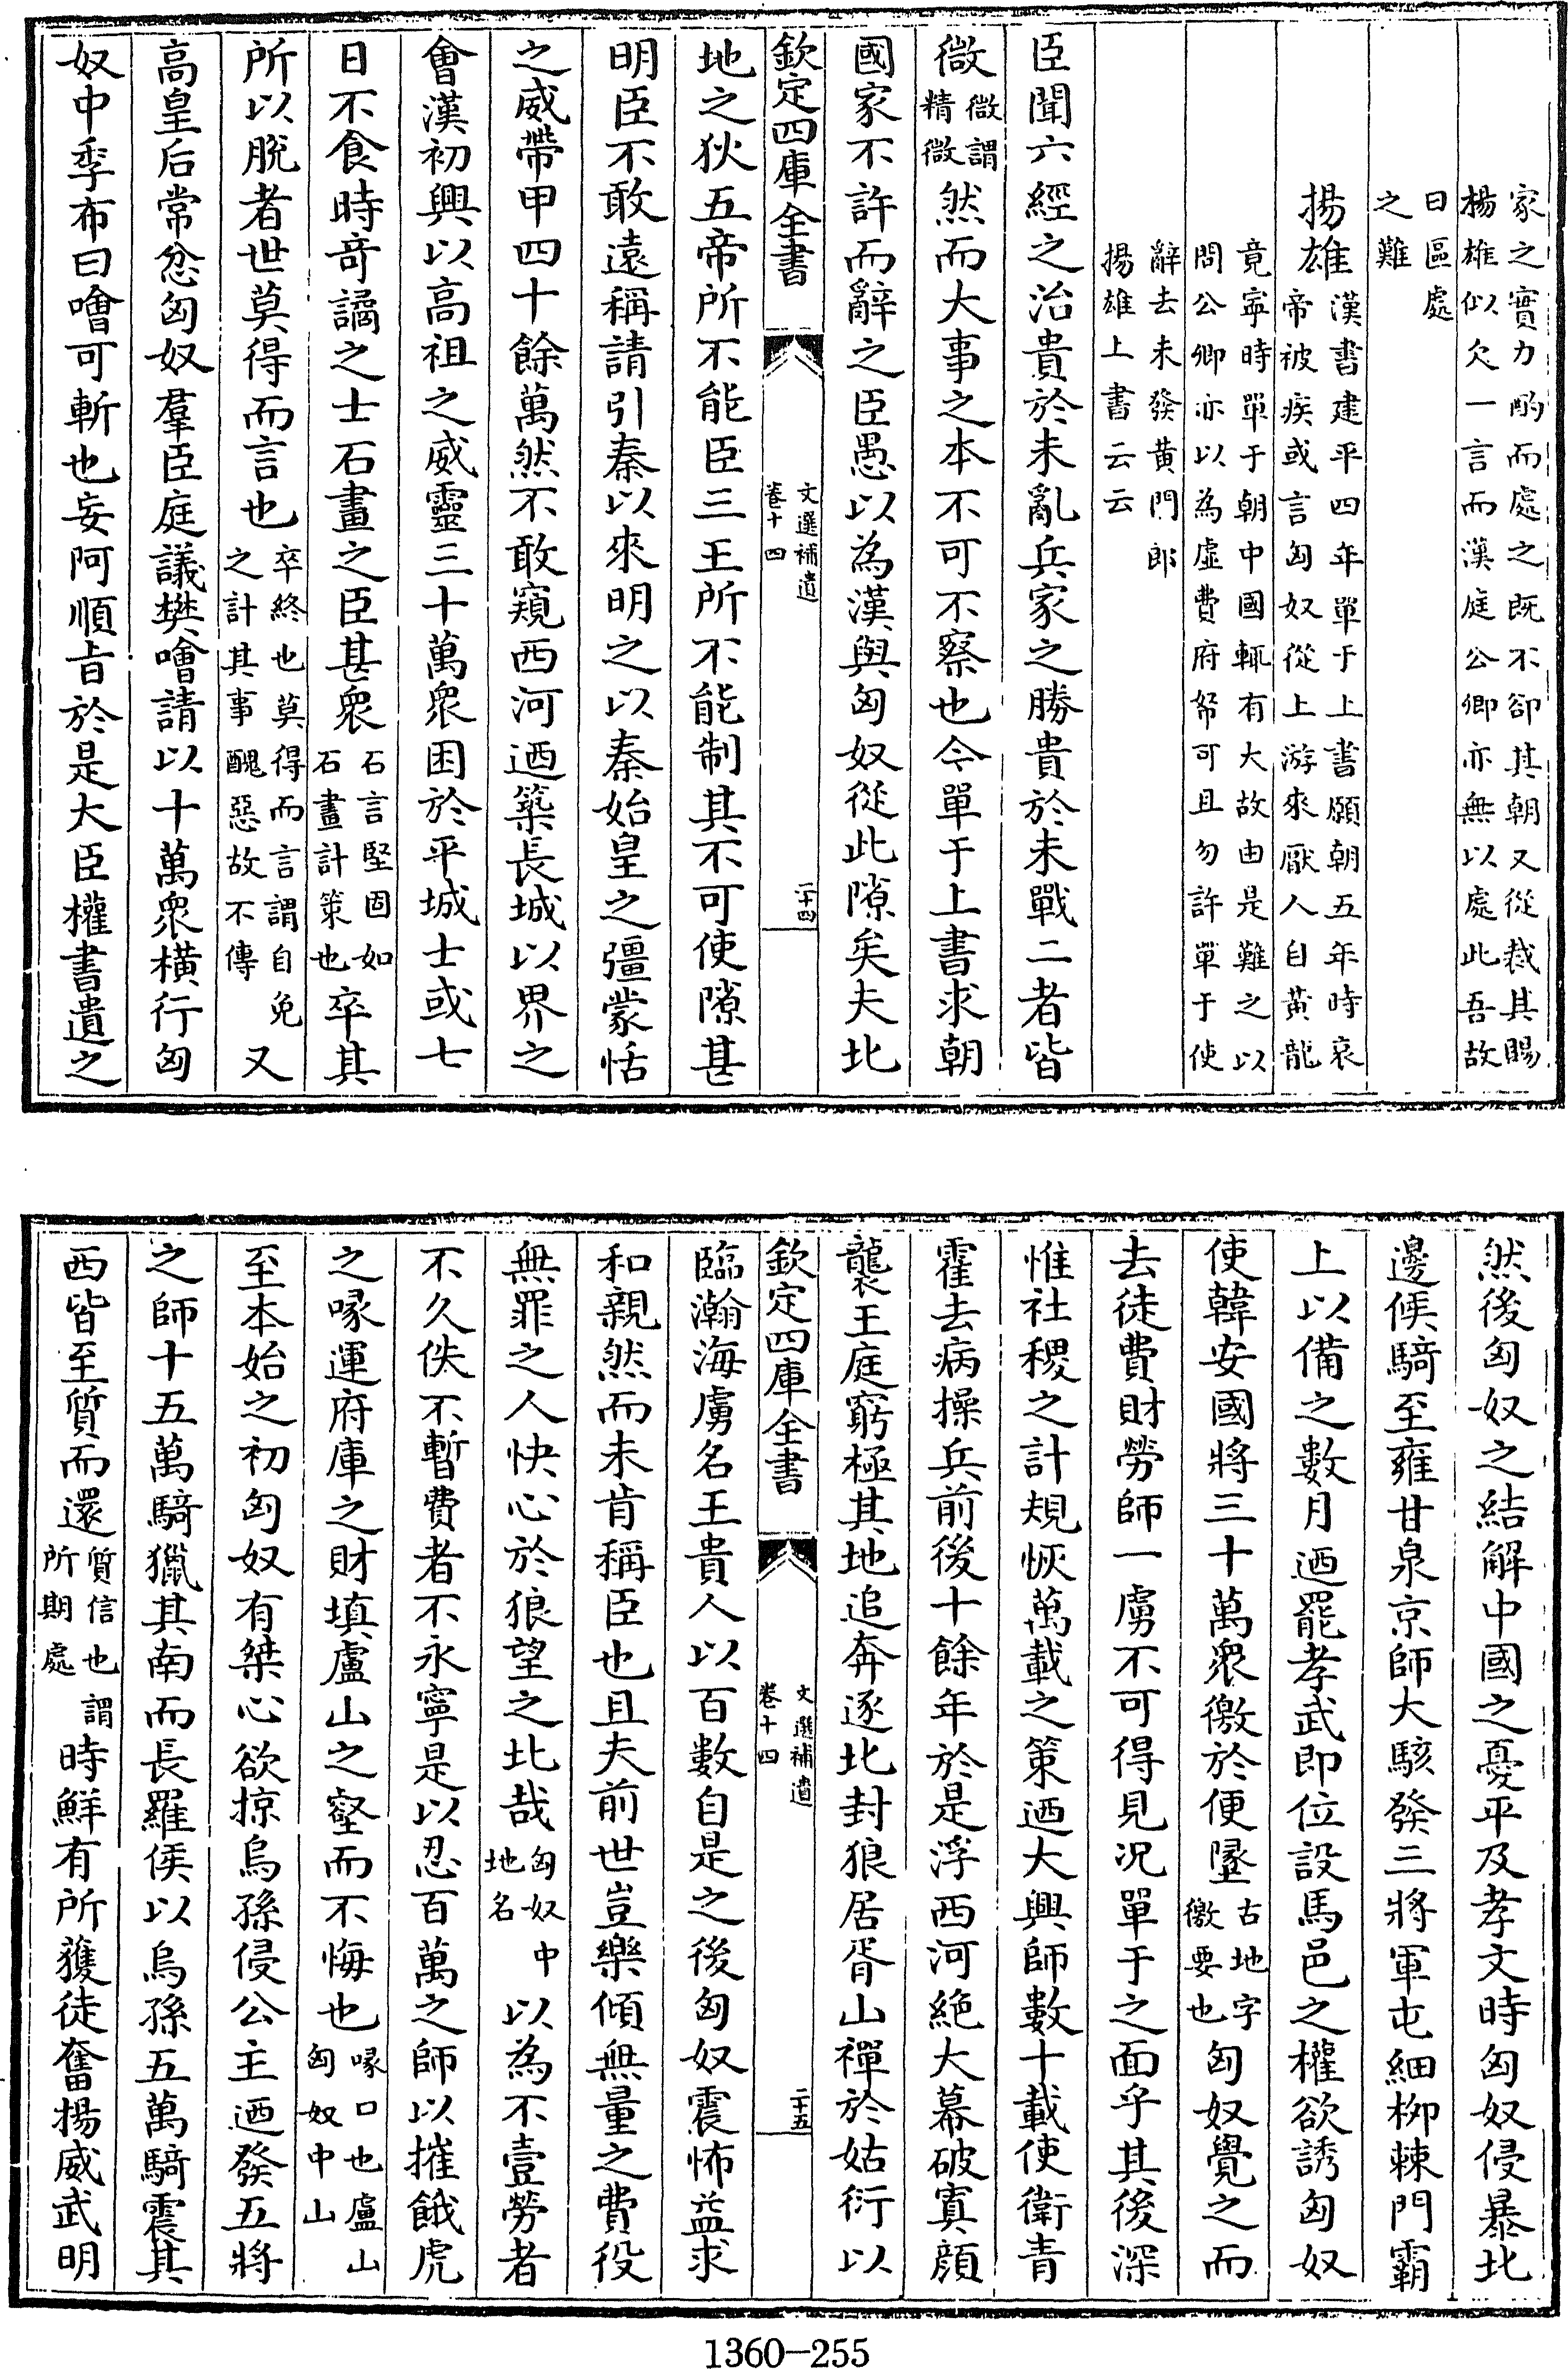 家之實力酌而處之既不卻其朝又從裁其賜
楊雄似欠一言而漢庭公卿亦無以處此吾故
曰區處
之難
揚雄漢書建平四年單于上書願朝五年時哀
帝被疾或言匈奴從上游來厭人自黃龍
竟寧時單于朝中國輒有大故由是難之以
問公卿亦以為虛費府帑可且勿許單于使
辭去未發黃門郎
揚雄上書云云
臣聞六經之治貴於未亂兵家之勝貴於未戰二者皆
微微謂精微然而大事之本不可不察也今單于上書求朝
國家不許而辭之臣愚以為漢與匈奴從此隙矣夫北
欽定四庫全書 文選補遺 卷十四 二十四
地之狄五帝所不能臣三王所不能制其不可使隙甚
明臣不敢遠稱請引秦以來明之以秦始皇之彊蒙恬
之威帶甲四十餘萬然不敢窺西河迺築長城以界之
會漢初興以高祖之威靈三十萬衆困於平城士或七
日不食時奇譎之士石畫之臣甚衆石言堅固如石畫計策也卒其
所以脫者世莫得而言也卒終也莫得而言謂自免之計其事醜惡故不傳又
高皇后常忿匈奴羣臣庭議樊噲請以十萬衆橫行匈
奴中季布曰噲可斬也妄阿順旨於是大臣權書遺之
然後匈奴之結解中國之憂平及孝文時匈奴侵暴北
邊候騎至雍甘泉京師大駭發三將軍屯細柳棘門霸
上以備之數月迺罷孝武即位設馬邑之權欲誘匈奴
使韓安國將三十萬衆徼於便墬古地字徼要也匈奴覺之而
去徒費財勞師一虜不可得見況單于之面乎其後深
惟社稷之計規恢萬載之策迺大興師數十載使衛青
霍去病操兵前後十餘年於是浮西河絶大幕破寘顔
襲王庭窮極其地追奔逐北封狼居胥山禪於姑衍以
欽定四庫全書 文選補遺 卷十四 二十五
臨瀚海虜名王貴人以百數自是之後匈奴震怖益求
和親然而未肯稱臣也且夫前世豈樂傾無量之費役
無罪之人快心於狼望之北哉匈奴中地名以為不壹勞者
不久佚不暫費者不永寧是以忍百萬之師以摧餓虎
之喙運府庫之財填盧山之壑而不悔也喙口也盧山匈奴中山
至本始之初匈奴有桀心欲掠烏孫侵公主迺發五將
之師十五萬騎獵其南而長羅侯以烏孫五萬騎震其
西皆至質而還質信也謂所期處時鮮有所獲徒奮揚威武明
1360-255